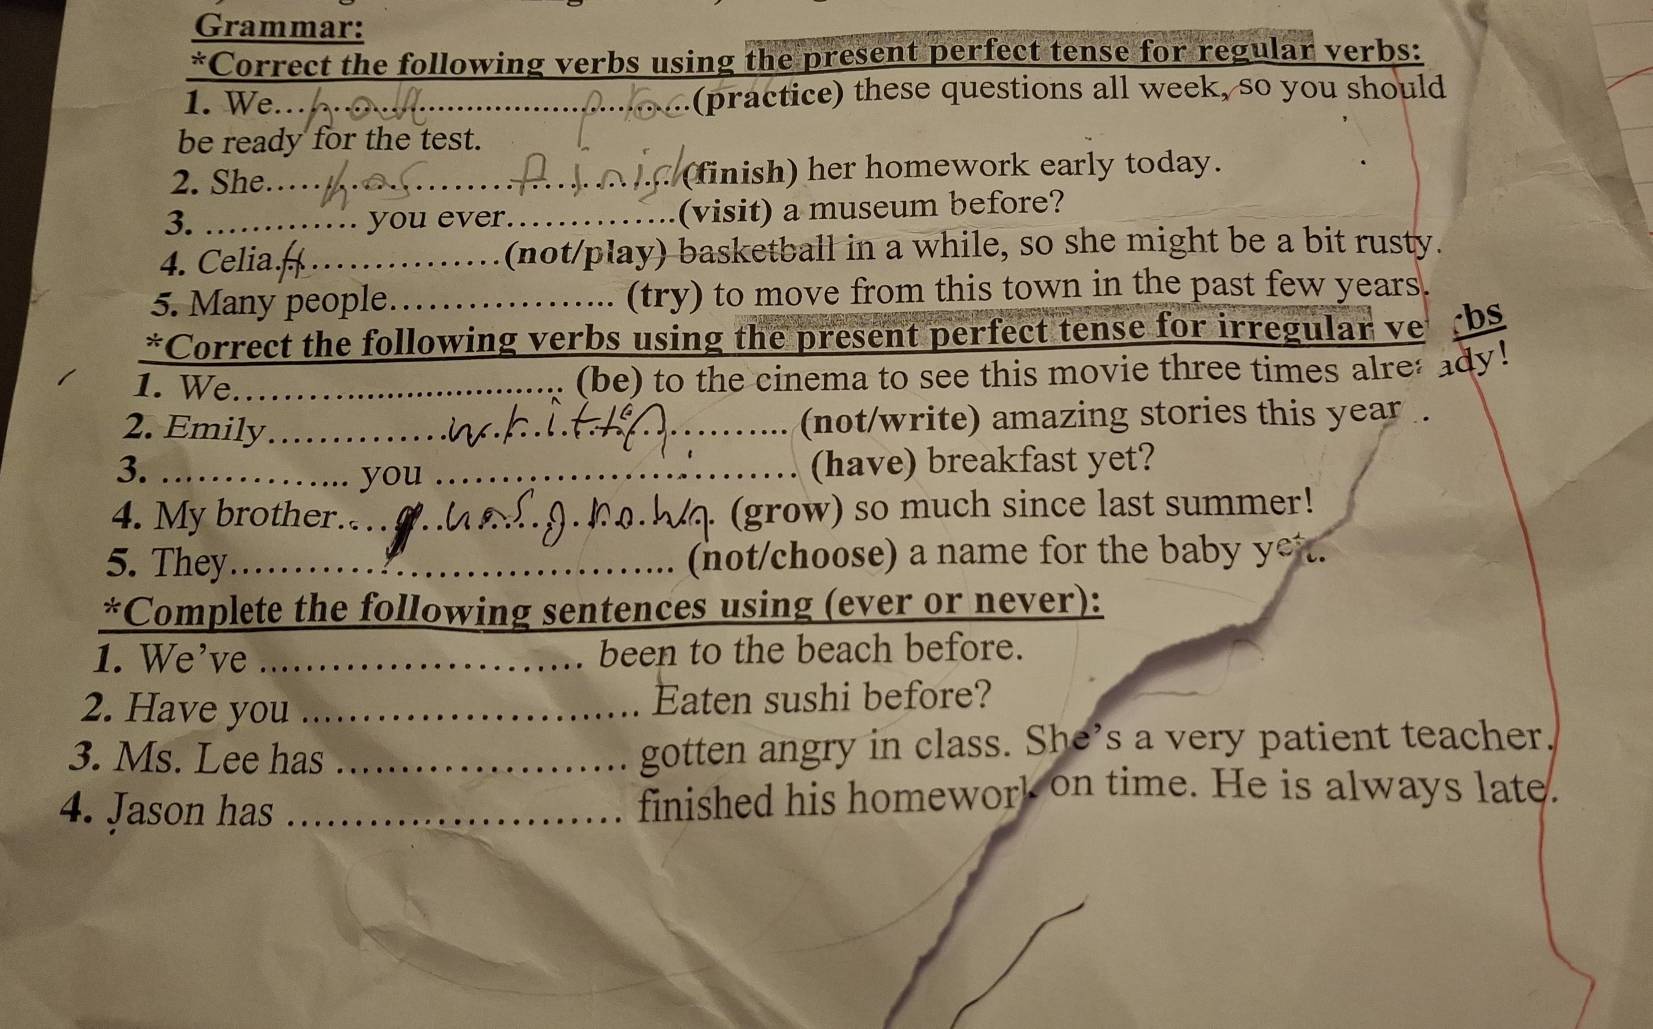 Grammar:
*Correct the following verbs using the present perfect tense for regular verbs:
1. We...........................................(practice) these questions all week, so you should
be ready for the test.
2. She.....has..............finish(finish) her homework early today.
3. .............. you ever...............(visit) a museum before?
4. Celia...................(not/play) basketball in a while, so she might be a bit rusty.
5. Many people................... (try) to move from this town in the past few years.
*Correct the following verbs using the present perfect tense for irregular verbs
1. We.............................. (be) to the cinema to see this movie three times already!
2. Emily...............written........... (not/write) amazing stories this year.
3. ................ you ................................ (have) breakfast yet?
4. My brother.... has grown. (grow) so much since last summer!
5. They...................................... (not/choose) a name for the baby yet.
*Complete the following sentences using (ever or never):
1. We've ........................... been to the beach before.
2. Have you ............................ Eaten sushi before?
3. Ms. Lee has ........................ gotten angry in class. She's a very patient teacher.
4. Jason has ............................ finished his homework on time. He is always late.